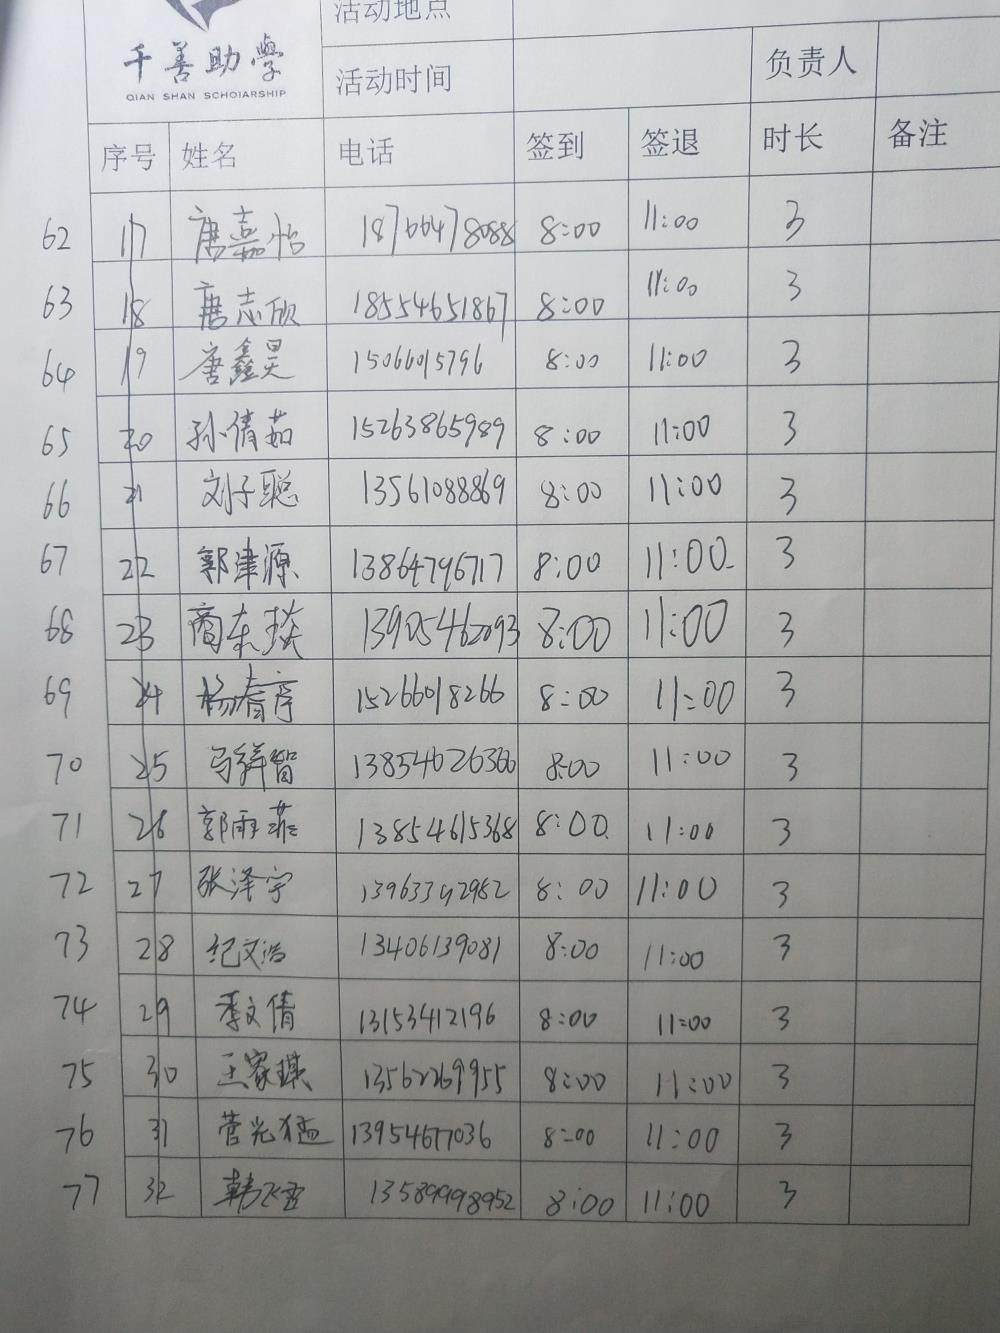 活动地点
千善助學
QIAN SHAN SCHOIARSHIP
活动时间 负责人
序号 姓名 电话 签到 签退 时长 备注
62 17 唐嘉怡 18766478088 8:00 11:00 3
63 18 唐志欣 18554651867 8:00 11:00 3
64 19 唐鑫昊 15066015796 8:00 11:00 3
65 20 孙倩茹 15263865989 8:00 11:00 3
66 21 刘子聪 13561088869 8:00 11:00 3
67 22 郭津源 13864796717 8:00 11:00 3
68 23 商东琰 13905462093 8:00 11:00 3
69 24 15266018266 8:00 11:00 3
70 25 马祥智 13854626360 8:00 11:00 3
71 26 郭雨菲 13854615368 8:00 11:00 3
72 27 张泽宇 13963392982 8:00 11:00 3
73 28 纪文浩 13406139081 8:00 11:00 3
74 29 李文倩 13153412196 8:00 11:00 3
75 30 王家琪 13562269955 8:00 11:00 3
76 31 菅光猛 13954677036 8:00 11:00 3
77 32 13589998952 8:00 11:00 3